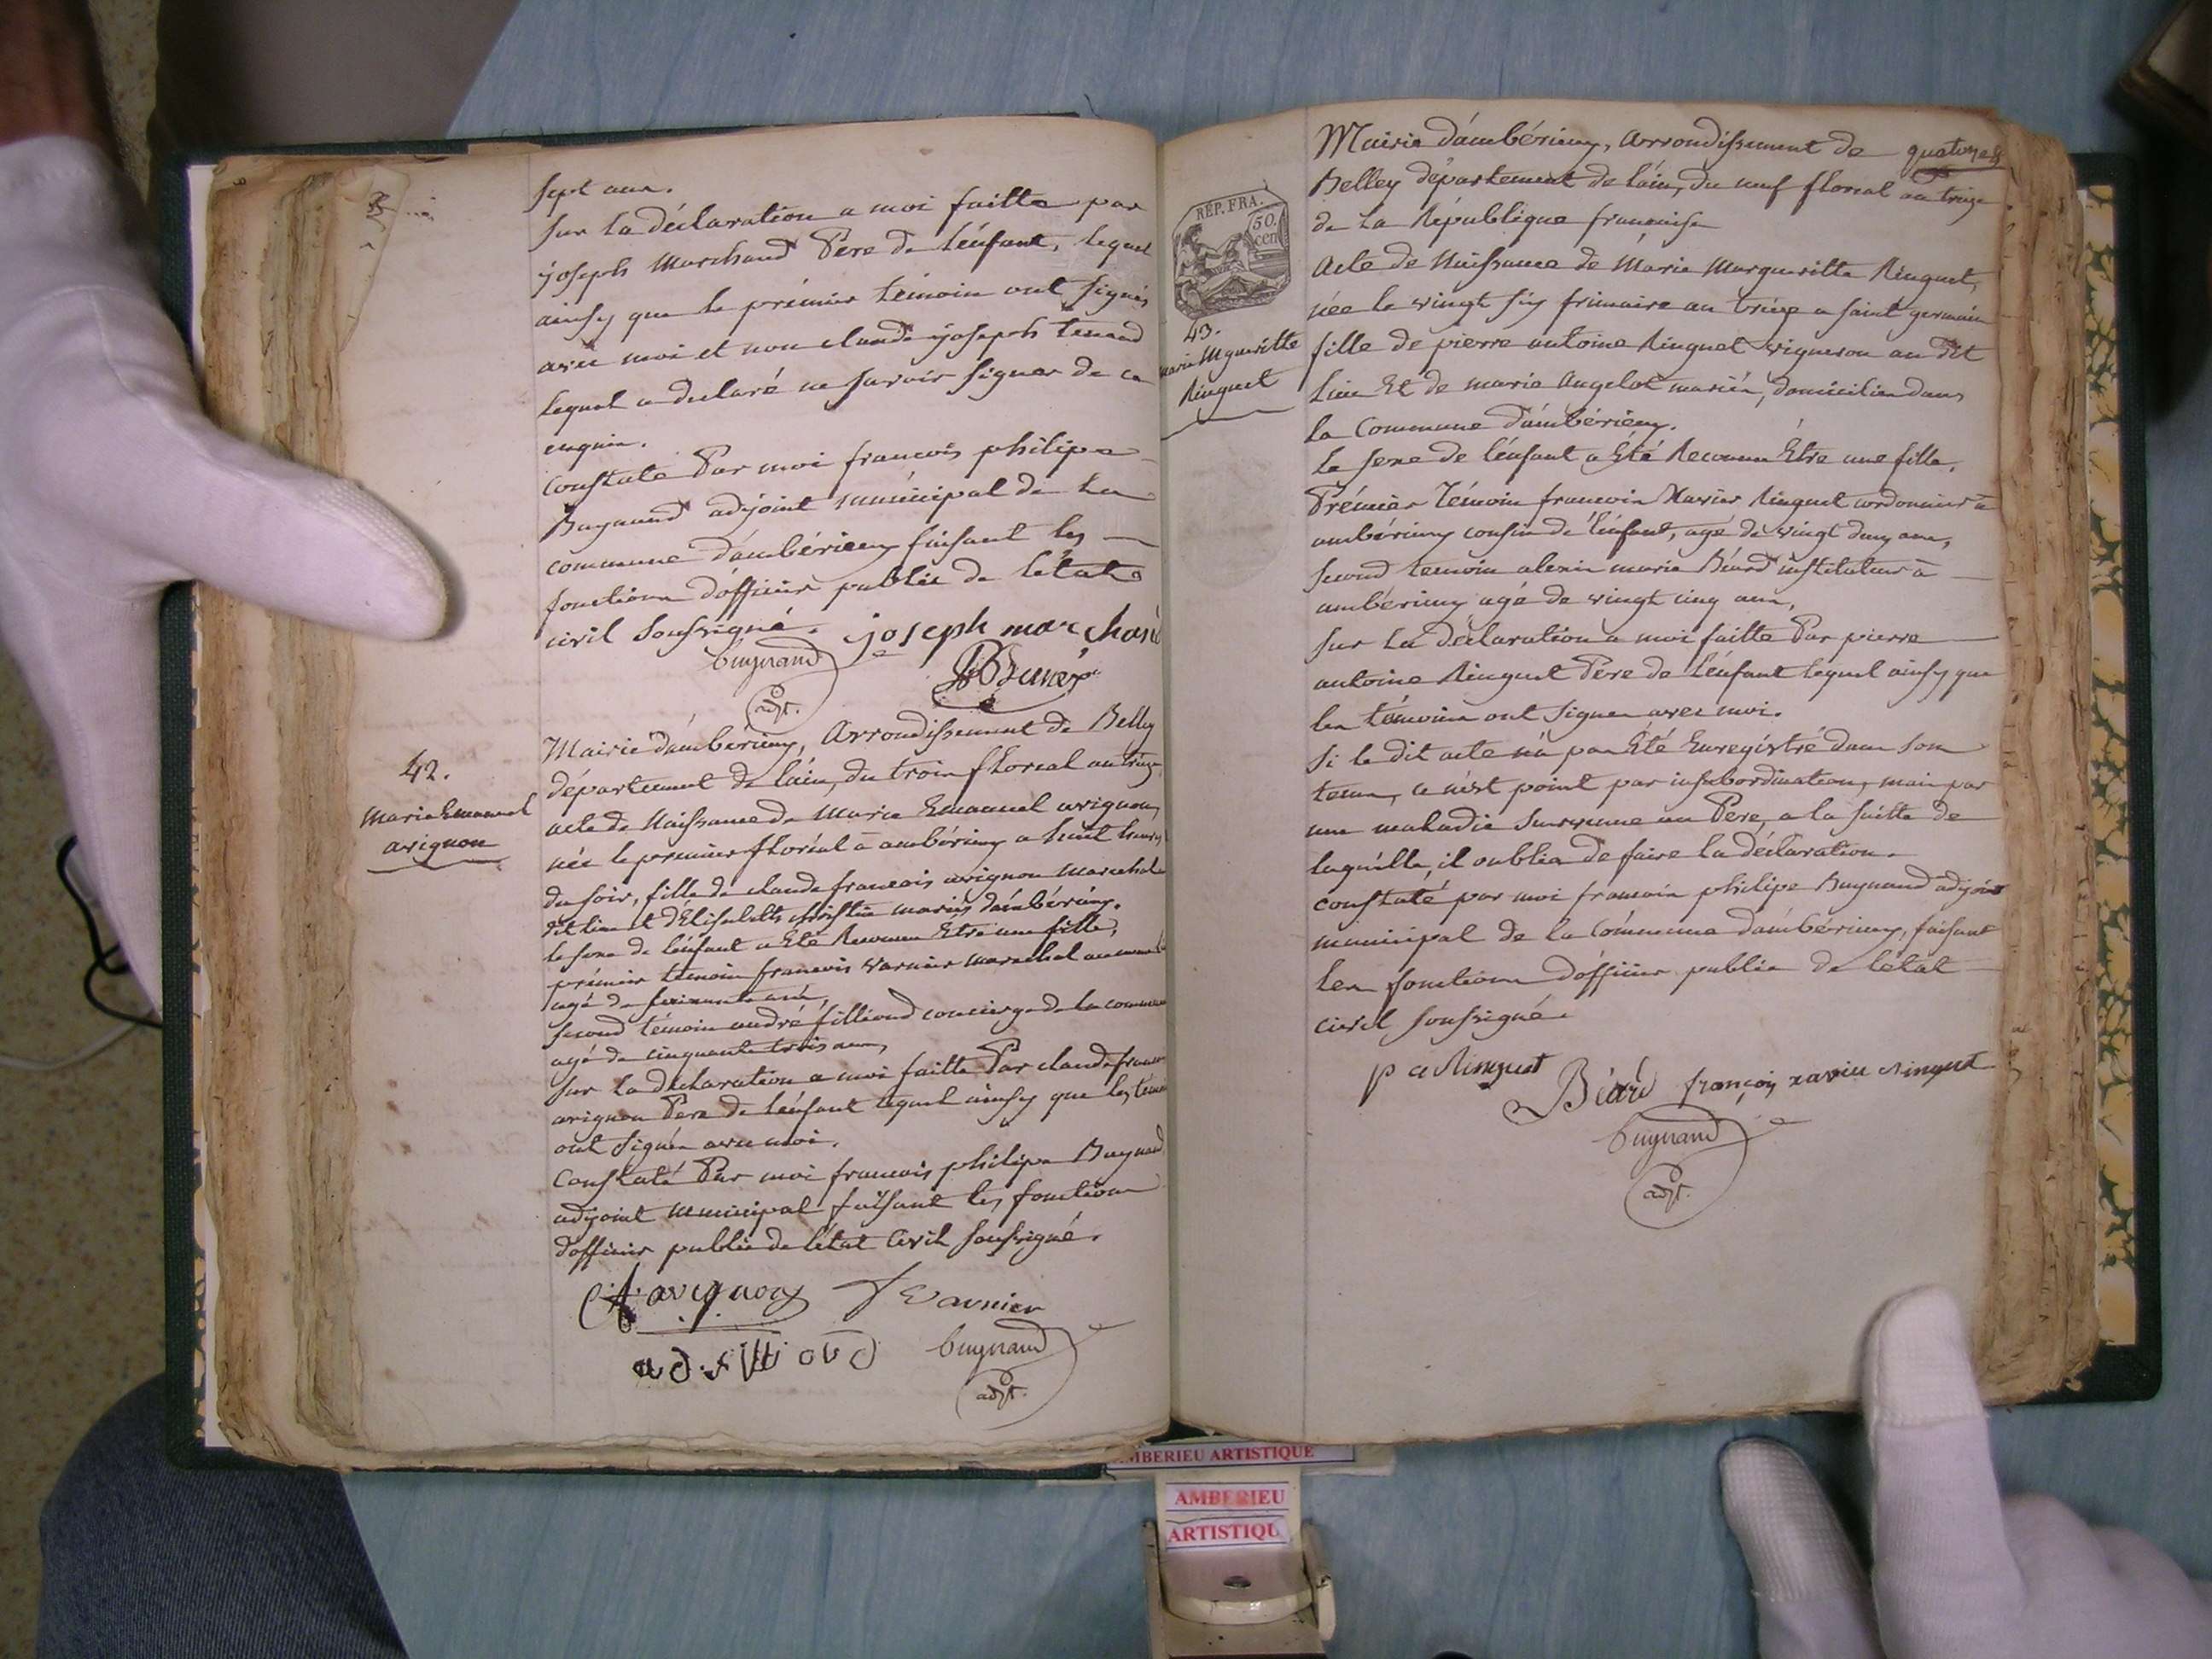 sept ans.
sur la déclaration a moi faitte par
joseph Marchand Pere de l'énfant, lequel
ainsy que le prémier témoin ont signés
avec moi et non claude joseph tenand
lequel a déclaré ne savoir signer de ce
enquis.
constaté Par moi francois philipe
Buynand adjoint municipal de la
commune d'ambérieux faisant les
fonctions d'officier public de l'état
civil soussigné. joseph marchand
buynand
adjt.
42.
Marie Emanuel
avignon
Mairie d'amberieux, Arrondissement de Belley
département de l'ain, du trois floréal an treize
acte de Naissance de Marie Emanuel avignon,
née le premier floréal à ambérieux a huit heures
du soir, fille de claude francois avignon marechal
dit lieu et d'Elisabeth christin mariés d'ambérieux.
le sexe de l'énfant a Eté Reconnu Etre une fille,
prémier témoin francois varnier marechal au meme
agé de soixante ans,
second témoin andré filliond concierge de la commune
agé de cinquante trois ans,
sur la déclaration a moi faitte Par claude francois
avignon Pere de l'énfant lequel ainsy que les témoins
ont signés avec moi.
Constaté Par moi francois philipe Buynand
adjoint municipal faisant les fonctions
d'officier public de l'état Civil soussigné.
avignon varnier
buynand
adjt.
Mairie d'ambérieux, Arrondissement de quatorze
Belley département de l'ain, du neuf floréal an treize
de la République francaise
REP. FRA.
50.
cen
43.
marie Mgueritte
Ringuet
Acte de Naissance de Marie Margueritte Ringuet,
née le vingt six frimaire an treize a saint germain
fille de pierre antoine Ringuet vigneron au dit
lieu Et de marie Angelot mariés, domiciliés dans
la Commune d'ambérieux.
Le sexe de l'énfant a Eté Reconnu Etre une fille,
Prémier Témoin francois Xavier Ringuet cordonnier à
ambérieux cousin de l'énfant, agé de vingt deux ans,
second temoin alexis marie Béard instituteur à
ambérieux agé de vingt cinq ans,
sur la déclaration a moi faitte Par pierre
antoine Ringuet Pere de l'énfant lequel ainsy que
les témoins ont signés avec moi.
si le dit acte n'a pas Eté Enregistré dans son
tems, ce n'est point par insubordination, mais par
une maladie survenue au Pere, a la suitte de
laquelle, il oublia de faire la déclaration.
constaté par moi francois philipe Buynand adjoint
municipal de la Commune d'ambérieux, faisant
les fonctions d'officier public de l'état
civil soussigné.
p a Ringuet Béard françois xavier ringuet
buynand
adjt.
AMBERIEU ARTISTIQUE
AMBERIEU
ARTISTIQU